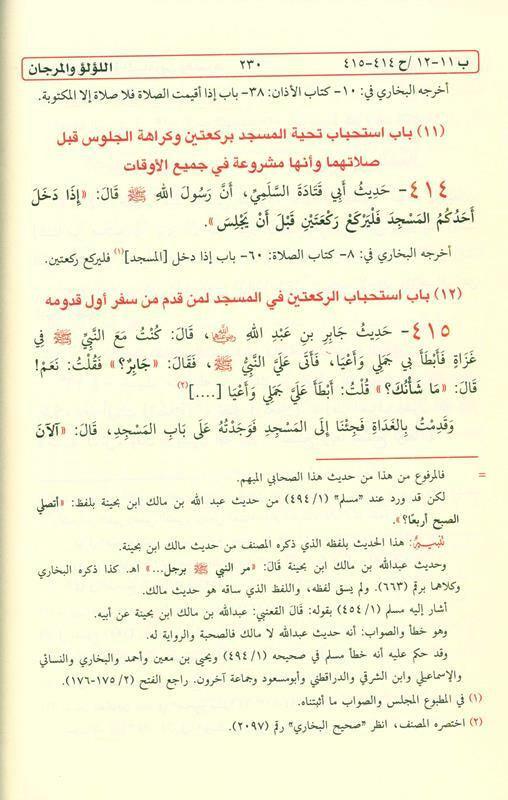 ب ١١-١٢ /ح ٤١٤-٤١٥ ٢٣٠ اللؤلؤ والمرجان
أخرجه البخاري في: ١٠- كتاب الأذان: ٣٨- باب إذا أقيمت الصلاة فلا صلاة إلا المكتوبة.
(١١) باب استحباب تحية المسجد بركعتين وكراهة الجلوس قبل
صلاتهما وأنها مشروعة في جميع الأوقات
٤١٤- حَدِيثُ أَبِي قَتَادَةَ السَّلَمِيِّ، أَنَّ رَسُولَ اللهِ ﷺ قَالَ: «إِذَا دَخَلَ
أَحَدُكُمُ المَسْجِدَ فَلْيَرْكَعْ رَكْعَتَيْنِ قَبْلَ أَنْ يَجْلِسَ».
أخرجه البخاري في: ٨- كتاب الصلاة: ٦٠- باب إذا دخل [المسجد](١) فليركع ركعتين.
(١٢) باب استحباب الركعتين في المسجد لمن قدم من سفر أول قدومه
٤١٥- حَدِيثُ جَابِرِ بنِ عَبْدِ اللهِ رضي الله عنهما، قَالَ: كُنْتُ مَعَ النَّبِيِّ ﷺ فِي
غَزَاةٍ فَأَبْطَأَ بِي جَمَلِي وَأَعْيَا، فَأَتَى عَلَيَّ النَّبِيُّ ﷺ، فَقَالَ: «جَابِرٌ؟» فَقُلْتُ: نَعَمْ!
قَالَ: «مَا شَأْنُكَ؟» قُلْتُ: أَبْطَأَ عَلَيَّ جَمَلِي وَأَعْيَا [....](٢)
وَقَدِمْتُ بِالغَدَاةِ فَجِئْنَا إِلَى المَسْجِدِ فَوَجَدْتُهُ عَلَى بَابِ المَسْجِدِ، قَالَ: «آلآنَ
= فالمرفوع من هذا من حديث هذا الصحابي المبهم.
لكن قد ورد عند "مسلم" (١/ ٤٩٤) من حديث عبد الله بن مالك ابن بحينة بلفظ: «أتصلي
الصبح أربعًا؟».
تنبيه: هذا الحديث بلفظه الذي ذكره المصنف من حديث مالك ابن بحينة.
وحديث عبدالله بن مالك ابن بحينة قَالَ: «مر النبي ﷺ برجل...» اهـ. كذا ذكره البخاري
وكلاهما برقم (٦٦٣). ولم يسق لفظه، واللفظ الذي ساقه هو حديث مالك.
أشار إليه مسلم (١/ ٤٥٤) بقوله: قَالَ القعنبي: عبدالله بن مالك ابن بحينة عن أبيه.
وهو خطأ والصواب: أنه حديث عبدالله لا مالك فالصحبة والرواية له.
وقد حكم عليه أنه خطأ مسلم في صحيحه (١/ ٤٩٤) ويحيى بن معين وأحمد والبخاري والنسائي
والإسماعيلي وابن الشرقي والدراقطني وأبومسعود وجماعة آخرون. راجع الفتح (٢/ ١٧٥-١٧٦).
(١) في المطبوع المجلس والصواب ما أثبتناه.
(٢) اختصره المصنف، انظر "صحيح البخاري" رقم (٢٠٩٧).